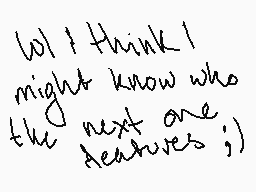 lol I think I
might know who
the next one
features ;)